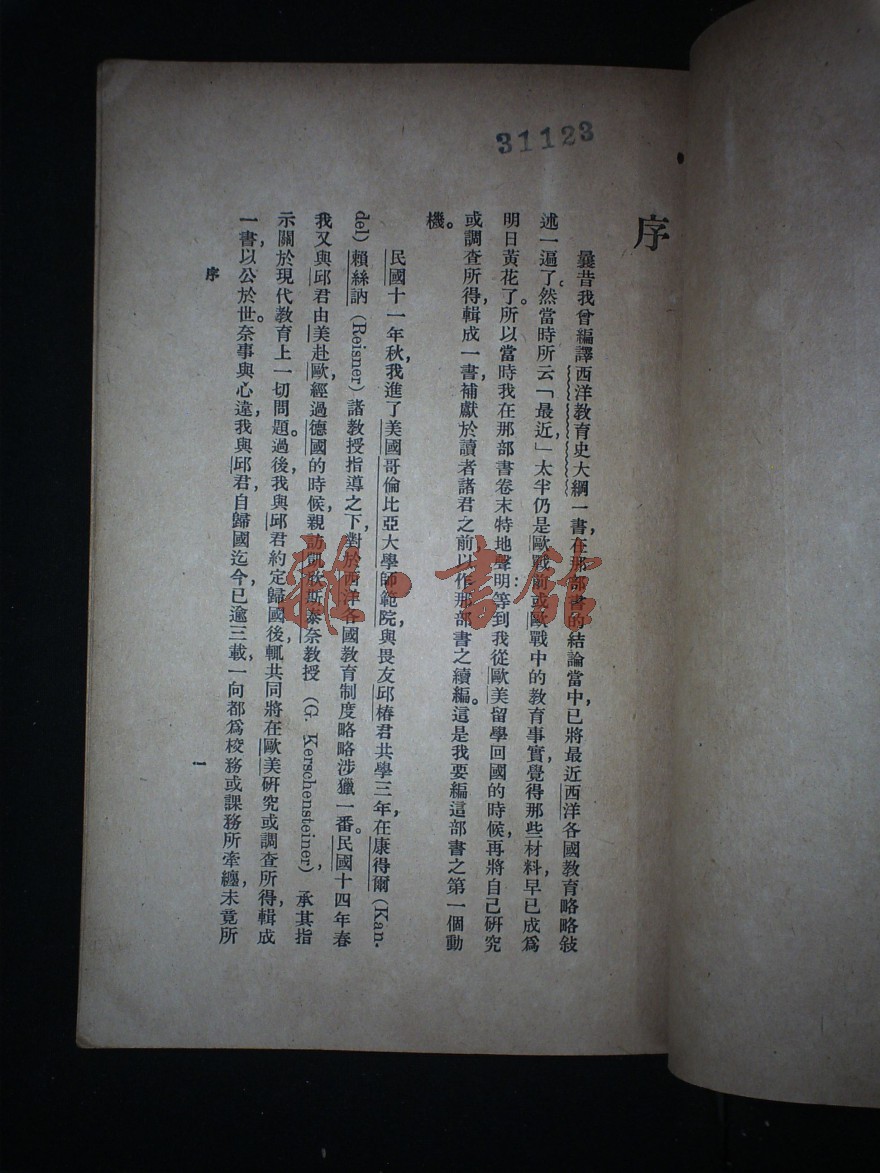 31123
序
曩昔我曾編譯西洋教育史大綱一書，在那部書的結論當中，已將最近西洋各國教育略略敍
述一遍了。然當時所云「最近」，太半仍是歐戰前或歐戰中的教育事實，覺得那些材料早已成爲
明日黃花了。所以當時我在那部書卷末特地聲明：等到我從歐美留學回國的時候，再將自己研究
或調查所得，輯成一書，補獻於讀者諸君之前，以作那部書之續編。這是我要編這部書之第一個動
機。
民國十一年秋，我進了美國哥倫比亞大學師範院，與畏友邱椿君共學三年，在康得爾（Kan-
del）賴絲訥（Reisner）諸教授指導之下，對於西洋各國教育制度略略涉獵一番。民國十四年春，
我又與邱君由美赴歐，經過德國的時候，親訪凱欣斯泰奈教授（G. Kerschensteiner）承其指
示關於現代教育上一切問題。過後，我與邱君約定歸國後，輒共同將在歐美研究或調查所得，輯成
一書，以公於世。奈事與心違，我與邱君自歸國迄今，已逾三載，一向都爲校務或課務所牽纏，未竟所
序
一
雜·書館